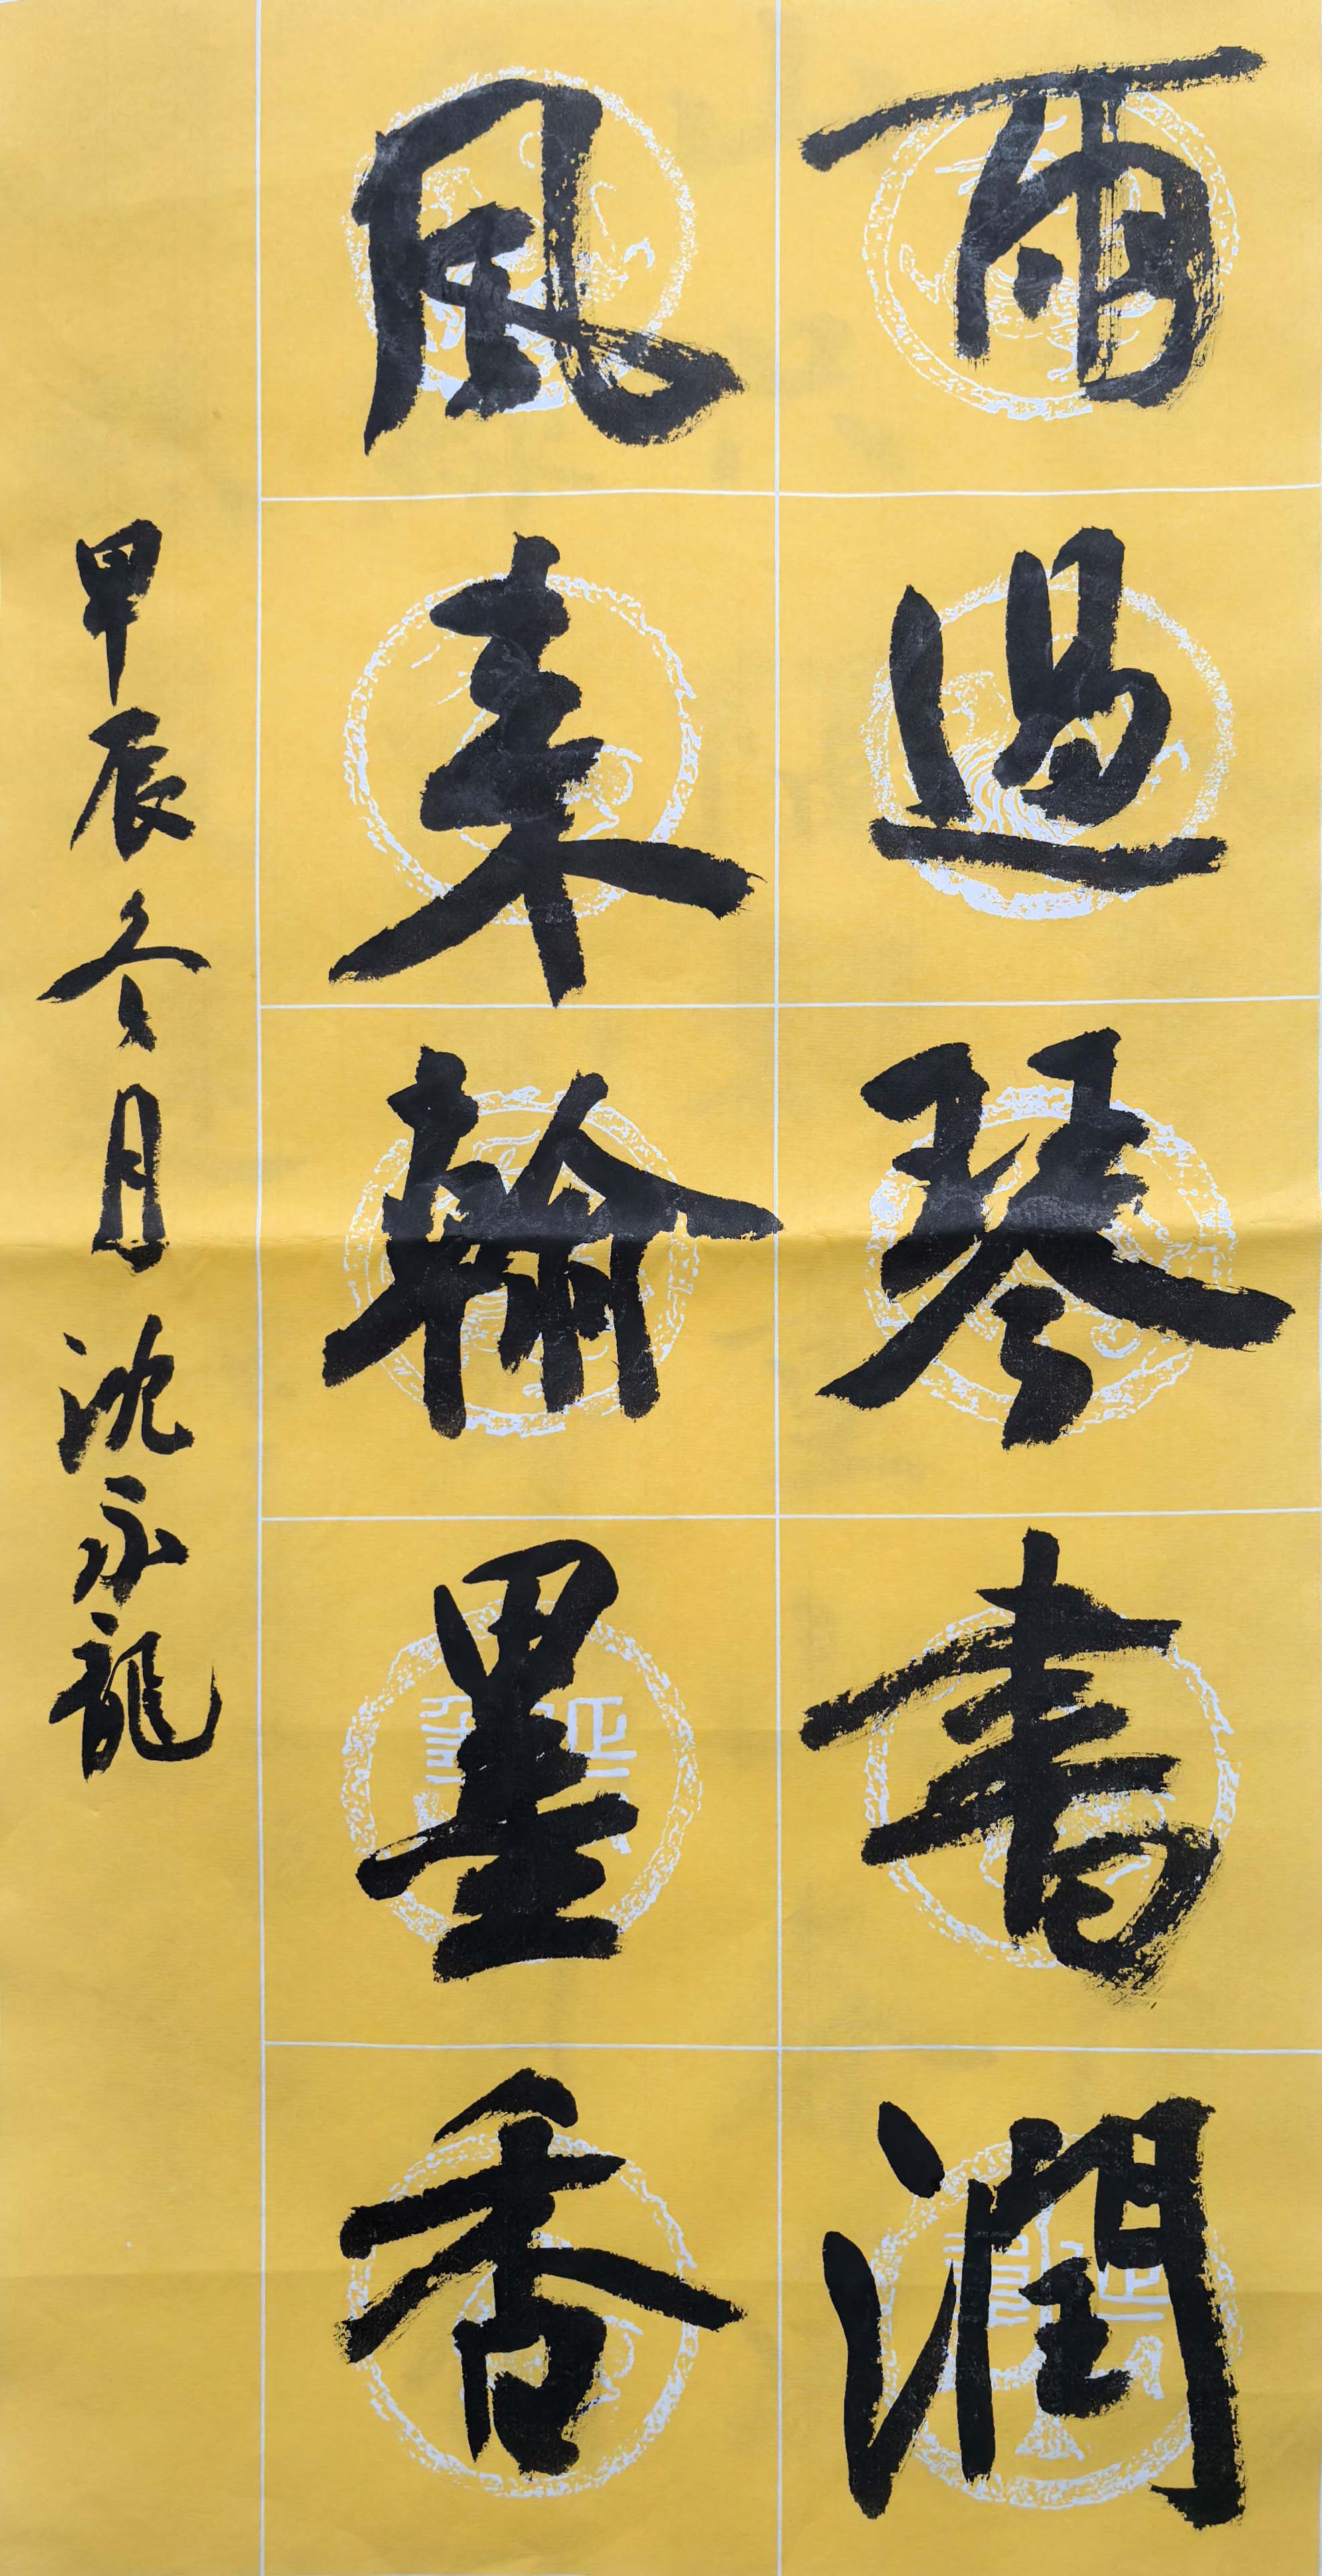 雨過琴書潤
風來翰墨香
甲辰冬月沈永龍